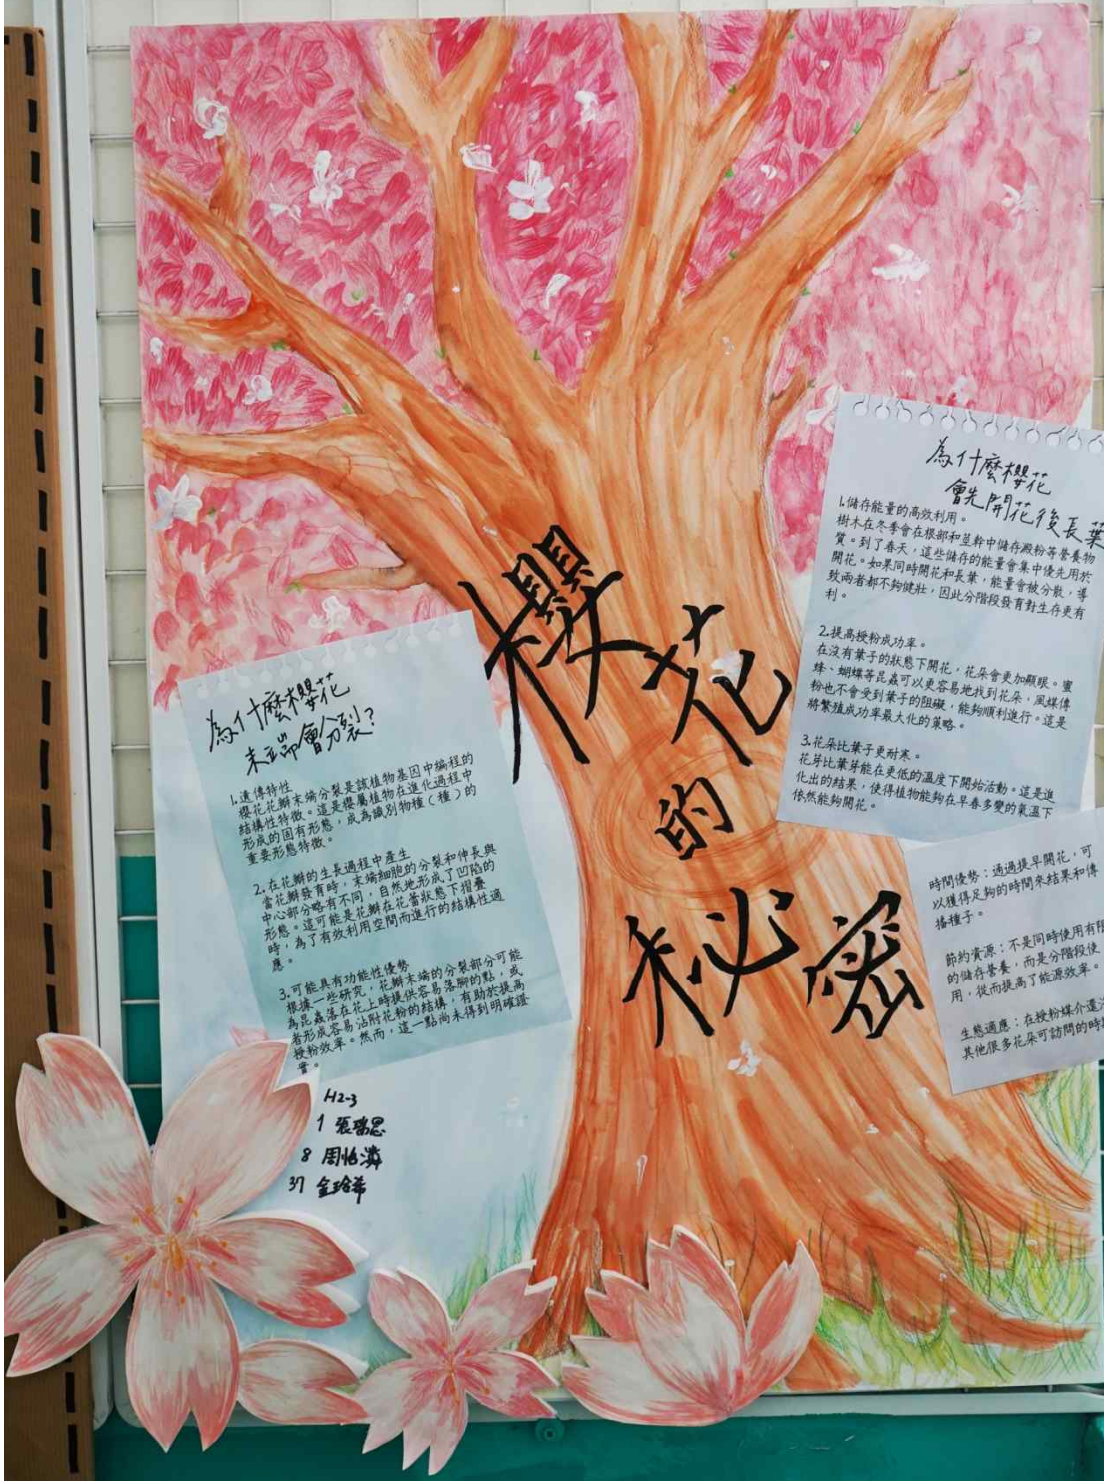 櫻花
的
秘密
為什麼櫻花
末端會分裂?
1.遺傳特性
櫻花花瓣末端分裂是該植物基因中編程的
結構性特徵。這是櫻屬植物在進化過程中
形成的固有形態,成為識別物種(種)的
重要形態特徵。
2.在花瓣的生長過程中產生
當花瓣發育時,末端細胞的分裂和伸長與
中心部分略有不同,自然地形成了凹陷的
形態。這可能是花瓣在花蕾狀態下摺疊
時,為了有效利用空間而進行的結構性適
應。
3.可能具有功能性優勢
根據一些研究,花瓣末端的分裂部分可能
為昆蟲落在花上時提供容易落腳的點,或
者形成容易沾附花粉的結構,有助於提高
授粉效率。然而,這一點尚未得到明確證
實。
H2-3
1 張瑞恩
8 周怡
37 金
為什麼櫻花
會先開花後長葉
1.儲存能量的高效利用。
樹木在冬季會在根部和莖幹中儲存澱粉等營養物
質。到了春天,這些儲存的能量會集中優先用於
開花。如果同時開花和長葉,能量會被分散,導
致兩者都不夠健壯,因此分階段發育對生存更有
利。
2.提高授粉成功率。
在沒有葉子的狀態下開花,花朵會更加顯眼。蜜
蜂、蝴蝶等昆蟲可以更容易地找到花朵,風媒傳
粉也不會受到葉子的阻礙,能夠順利進行。這是
將繁殖成功率最大化的策略。
3.花朵比葉子更耐寒。
花芽比葉芽能在更低的溫度下開始活動。這是進
化出的結果,使得植物能夠在早春多變的氣溫下
依然能夠開花。
時間優勢:通過提早開花,可
以獲得足夠的時間來結果和傳
播種子。
節約資源:不是同時使用有限
的儲存營養,而是分階段使
用,從而提高了能源效率。
生態適應:在授粉媒介還沒
其他很多花朵可訪問的時